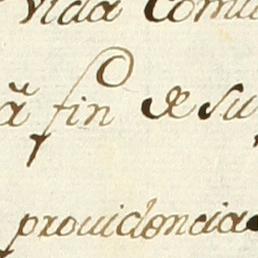 vida Comu
â fin de su
prouidencia